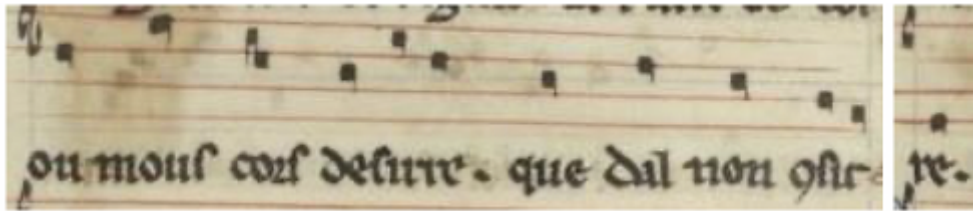 ou mons cors desire. que dal non ꝯsir
re.